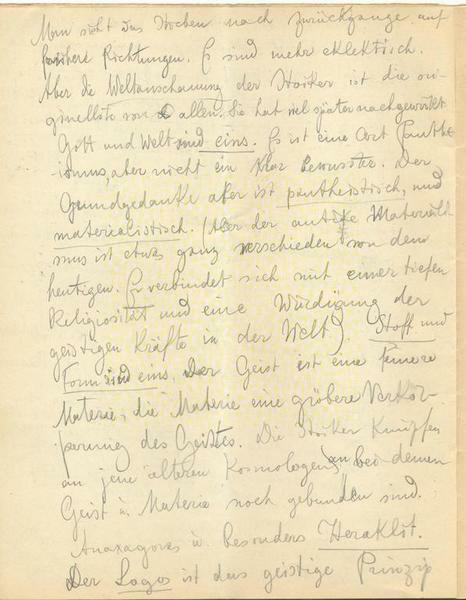 Man sieht das Stocken nach zurückgange auf
frühere Richtungen. Es sind mehr eklektisch.
Aber die Weltanschauung der Stoiker ist die ori-
ginellste von allen. Sie hat viel später nachgewirkt
Gott und Welt sind eins. Es ist eine Art Panthe-
ismus, aber nicht ein klar bewusster. Der
Grundgedanke aber ist pantheistisch, und
materialistisch. (Aber der antike Materialis-
mus ist etwas ganz verschieden von dem
heutigen. Er verbindet sich mit einer tiefen
Religiosität und eine Würdigung der
geistigen Kräfte in der Welt). Stoff und
Form sind eins. Der Geist ist eine feinere
Materie, die Materie eine gröbere Verkör-
perung des Geistes. Die Stoiker knüpfen
an jene älteren Kosmologen an bei denen
Geist u. Materie noch gebunden sind.
Anaxagoras u besonders Heraklit.
Der Logos ist das geistige Prinzip